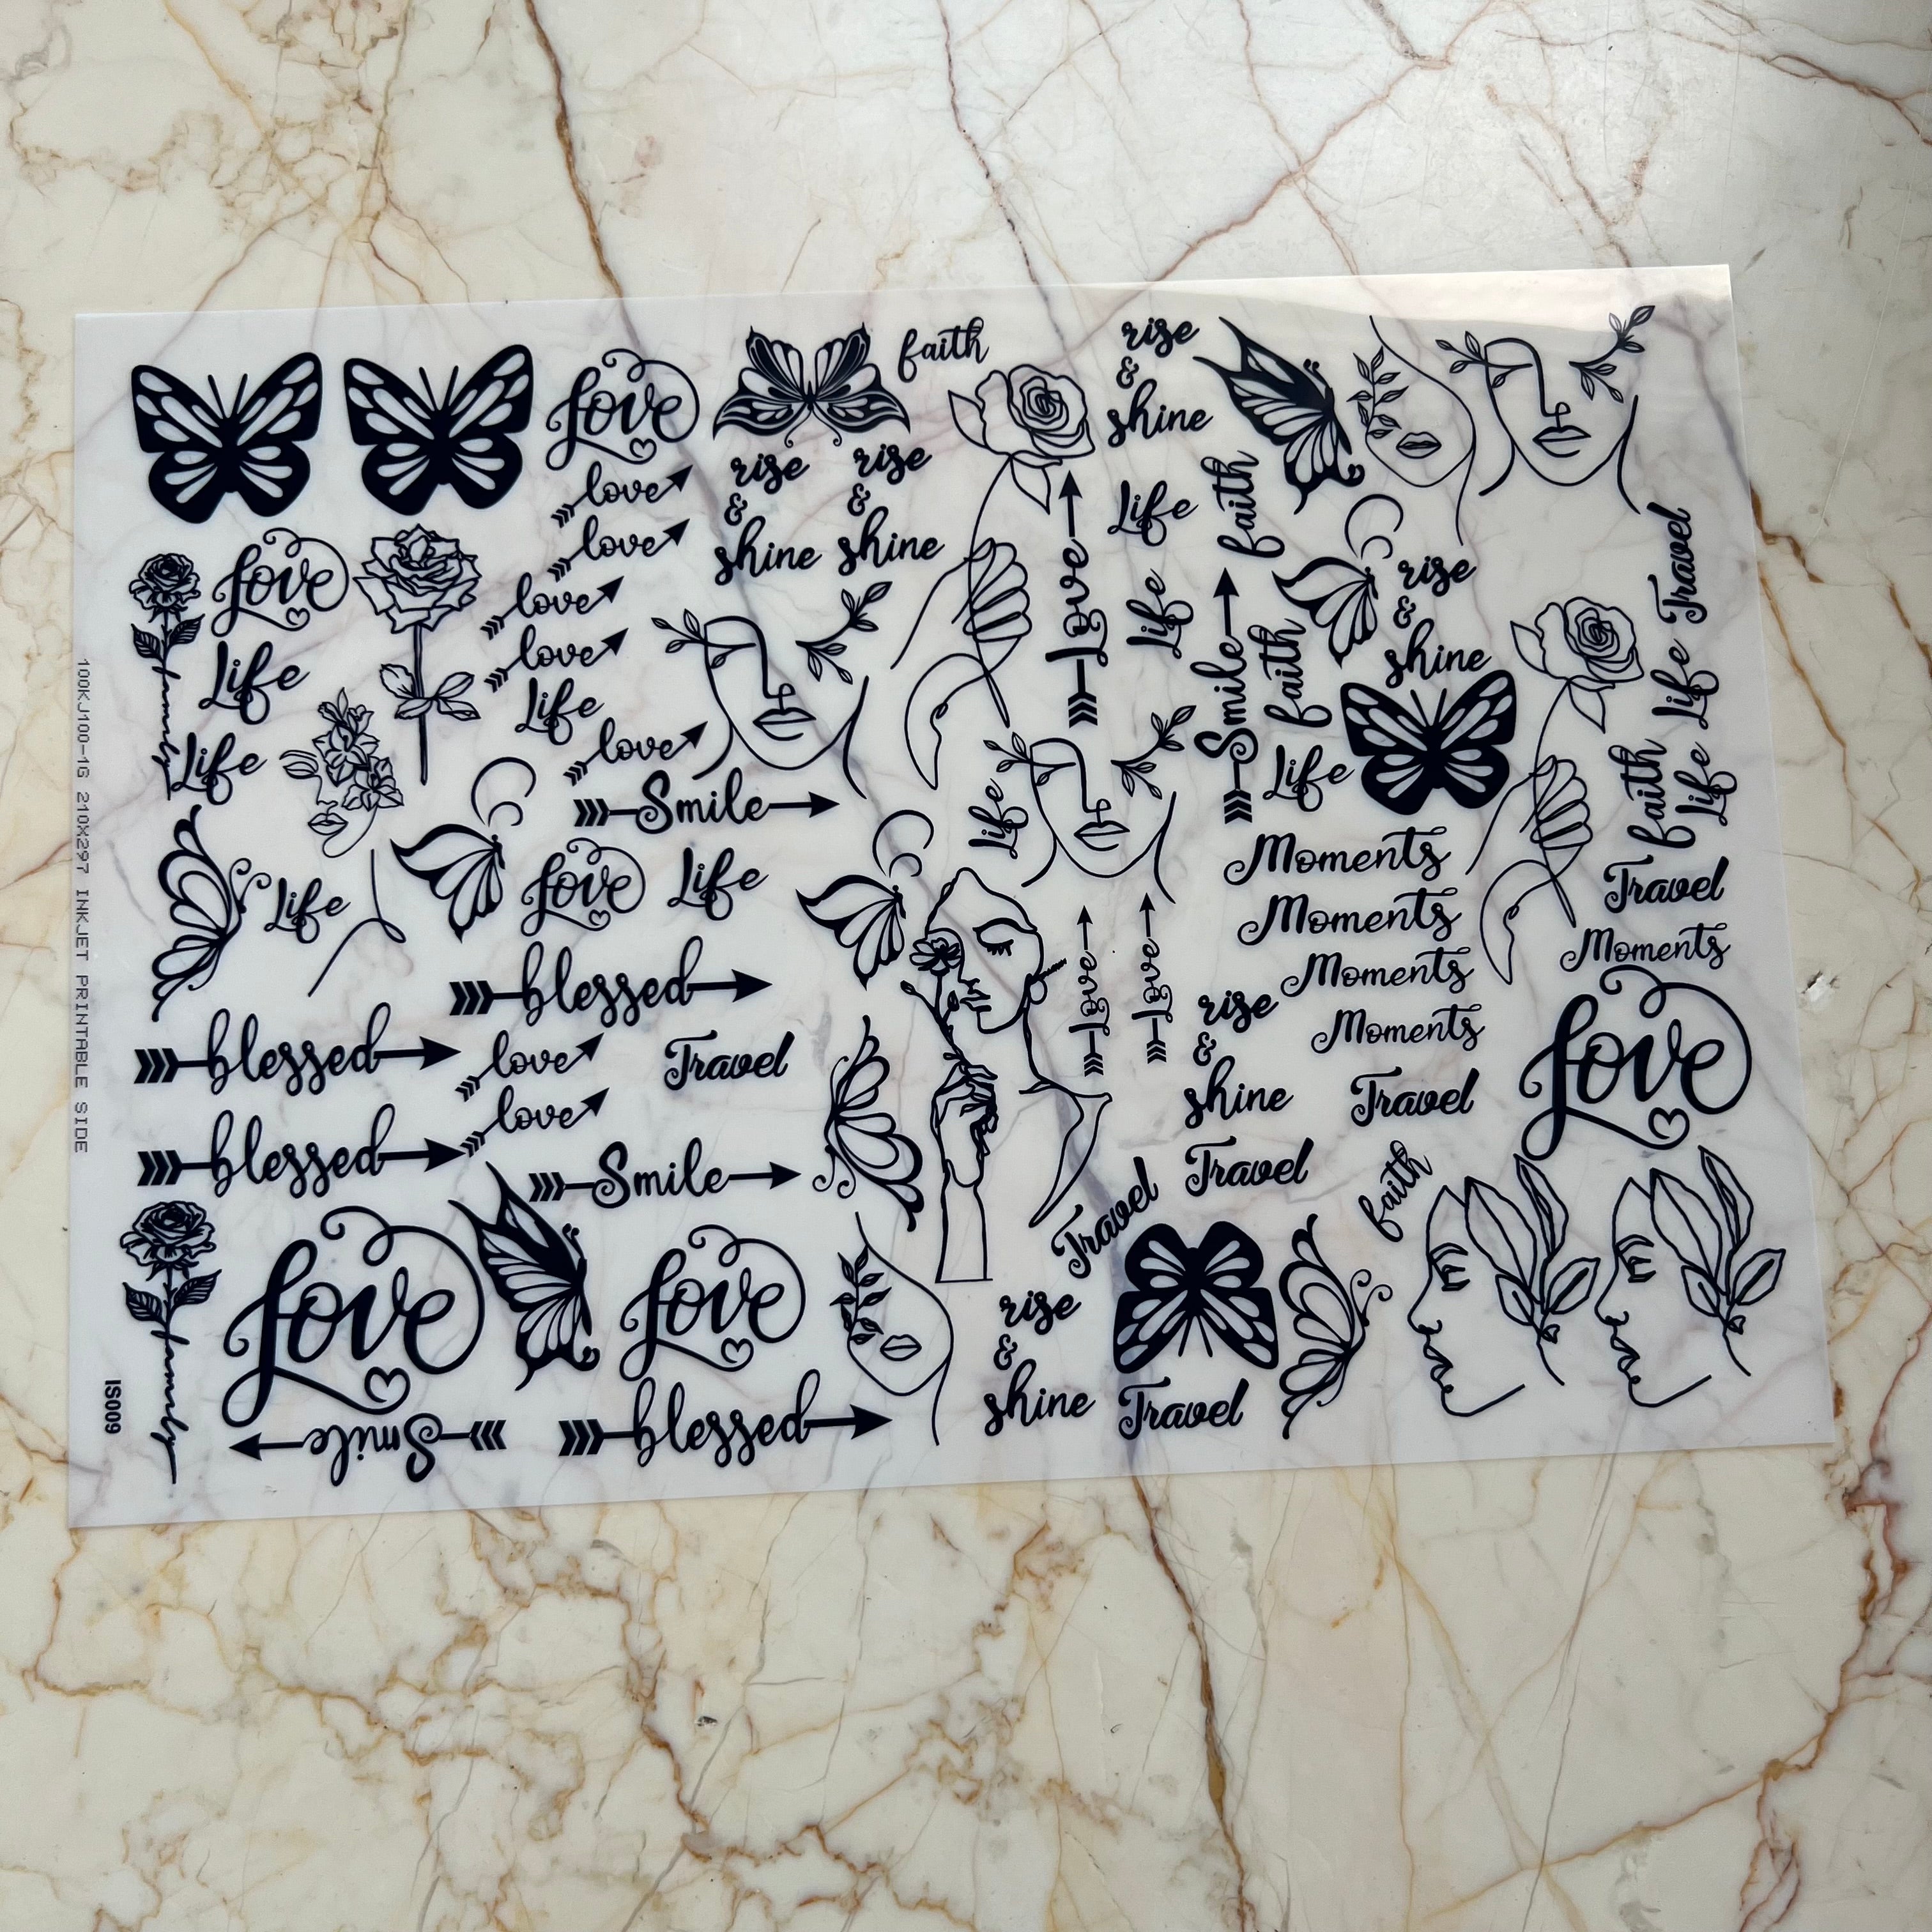 faith
rise
&
shine
Love
love
rise
&
shine
rise
&
shine
Life
faith
love
Love
love
love
Love
Life
Smile
faith
rise
&
shine
Travel
family
Life
love
Life
love
Life
Life
faith
Life
Life
Life
Smile
Life
Moments
Love
Life
Travel
Life
Moments
Moments
Moments
blessed
Love
Love
Moments
blessed
love
Travel
rise
&
shine
Travel
Love
love
blessed
Smile
Travel
Travel
faith
Love
Love
rise
&
shine
family
Smile
blessed
Travel
100KJ100-1G 210X297 INKJET PRINTABLE SIDE
IS009